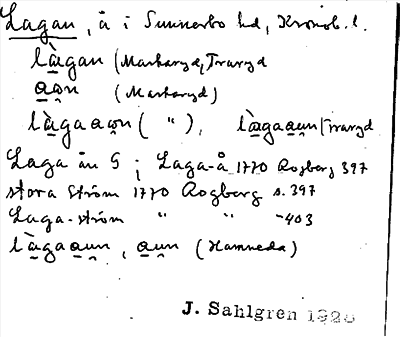 Lagan, å i Sunnerbo hd, Kronob. l.
là̱gan (Markaryd, Traryd
a̱o̯n (Markaryd)
là̱gaao̯n ( " ), là̱gaa̱u̯n (Traryd
Laga ån G ; Laga-å 1770 Rogberg 397
stora Ström 1770 Rogberg s. 397
Laga-ström " " -403
là̱gaa̱u̯n, a̱u̯n (Hamneda)
J. Sahlgren 1920